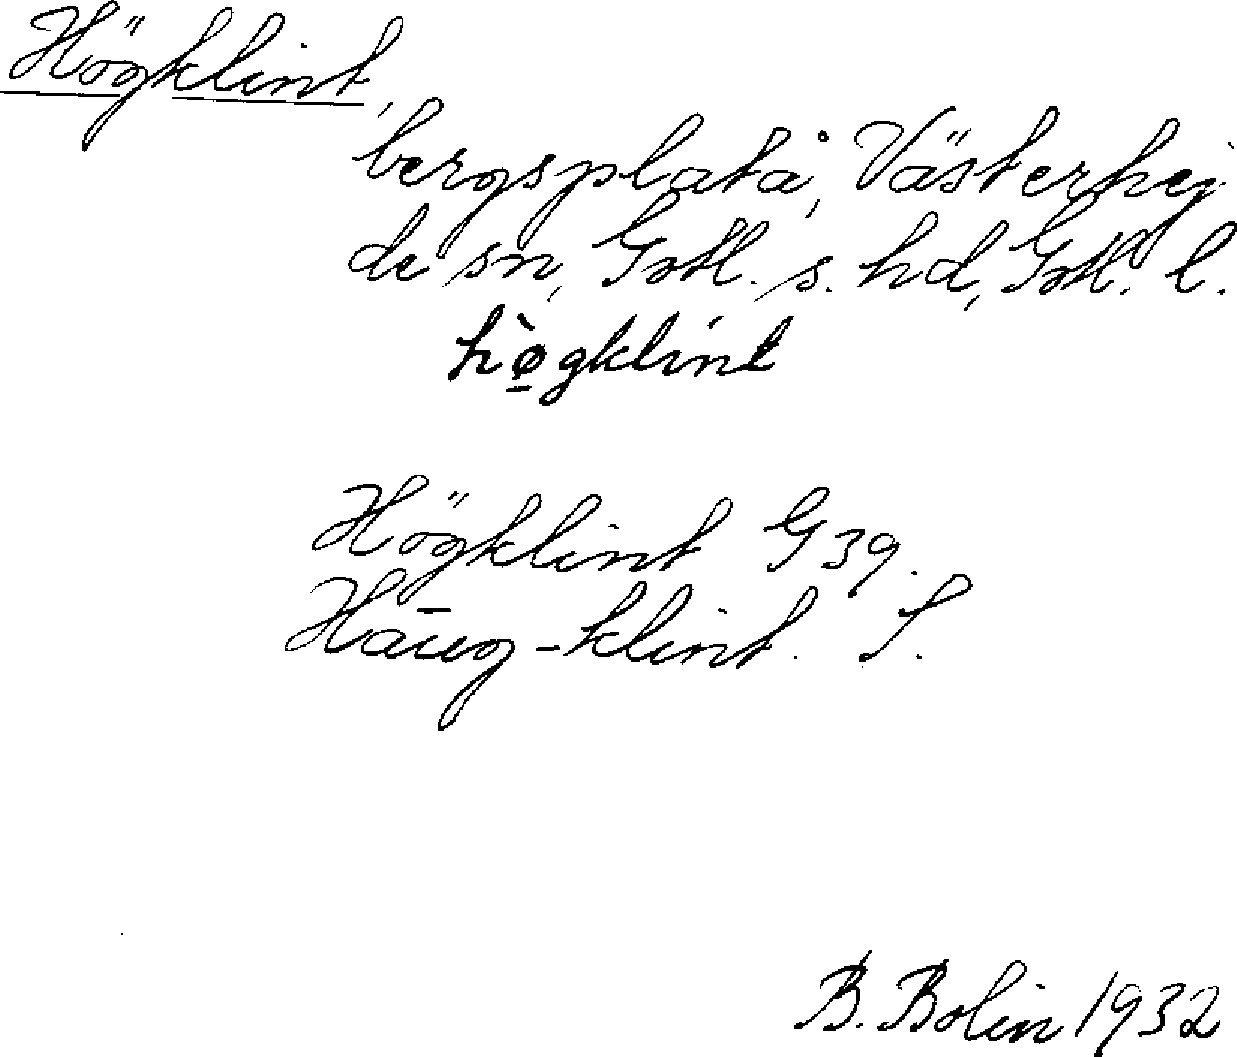 Högklint,
bergsplatå, Västerhej-
de sn, Gotl. s. hd, Gotl. l.
hø̲̀gklint
Högklint G 39.
Hāūg-klint. S.
B. Bolin 1932